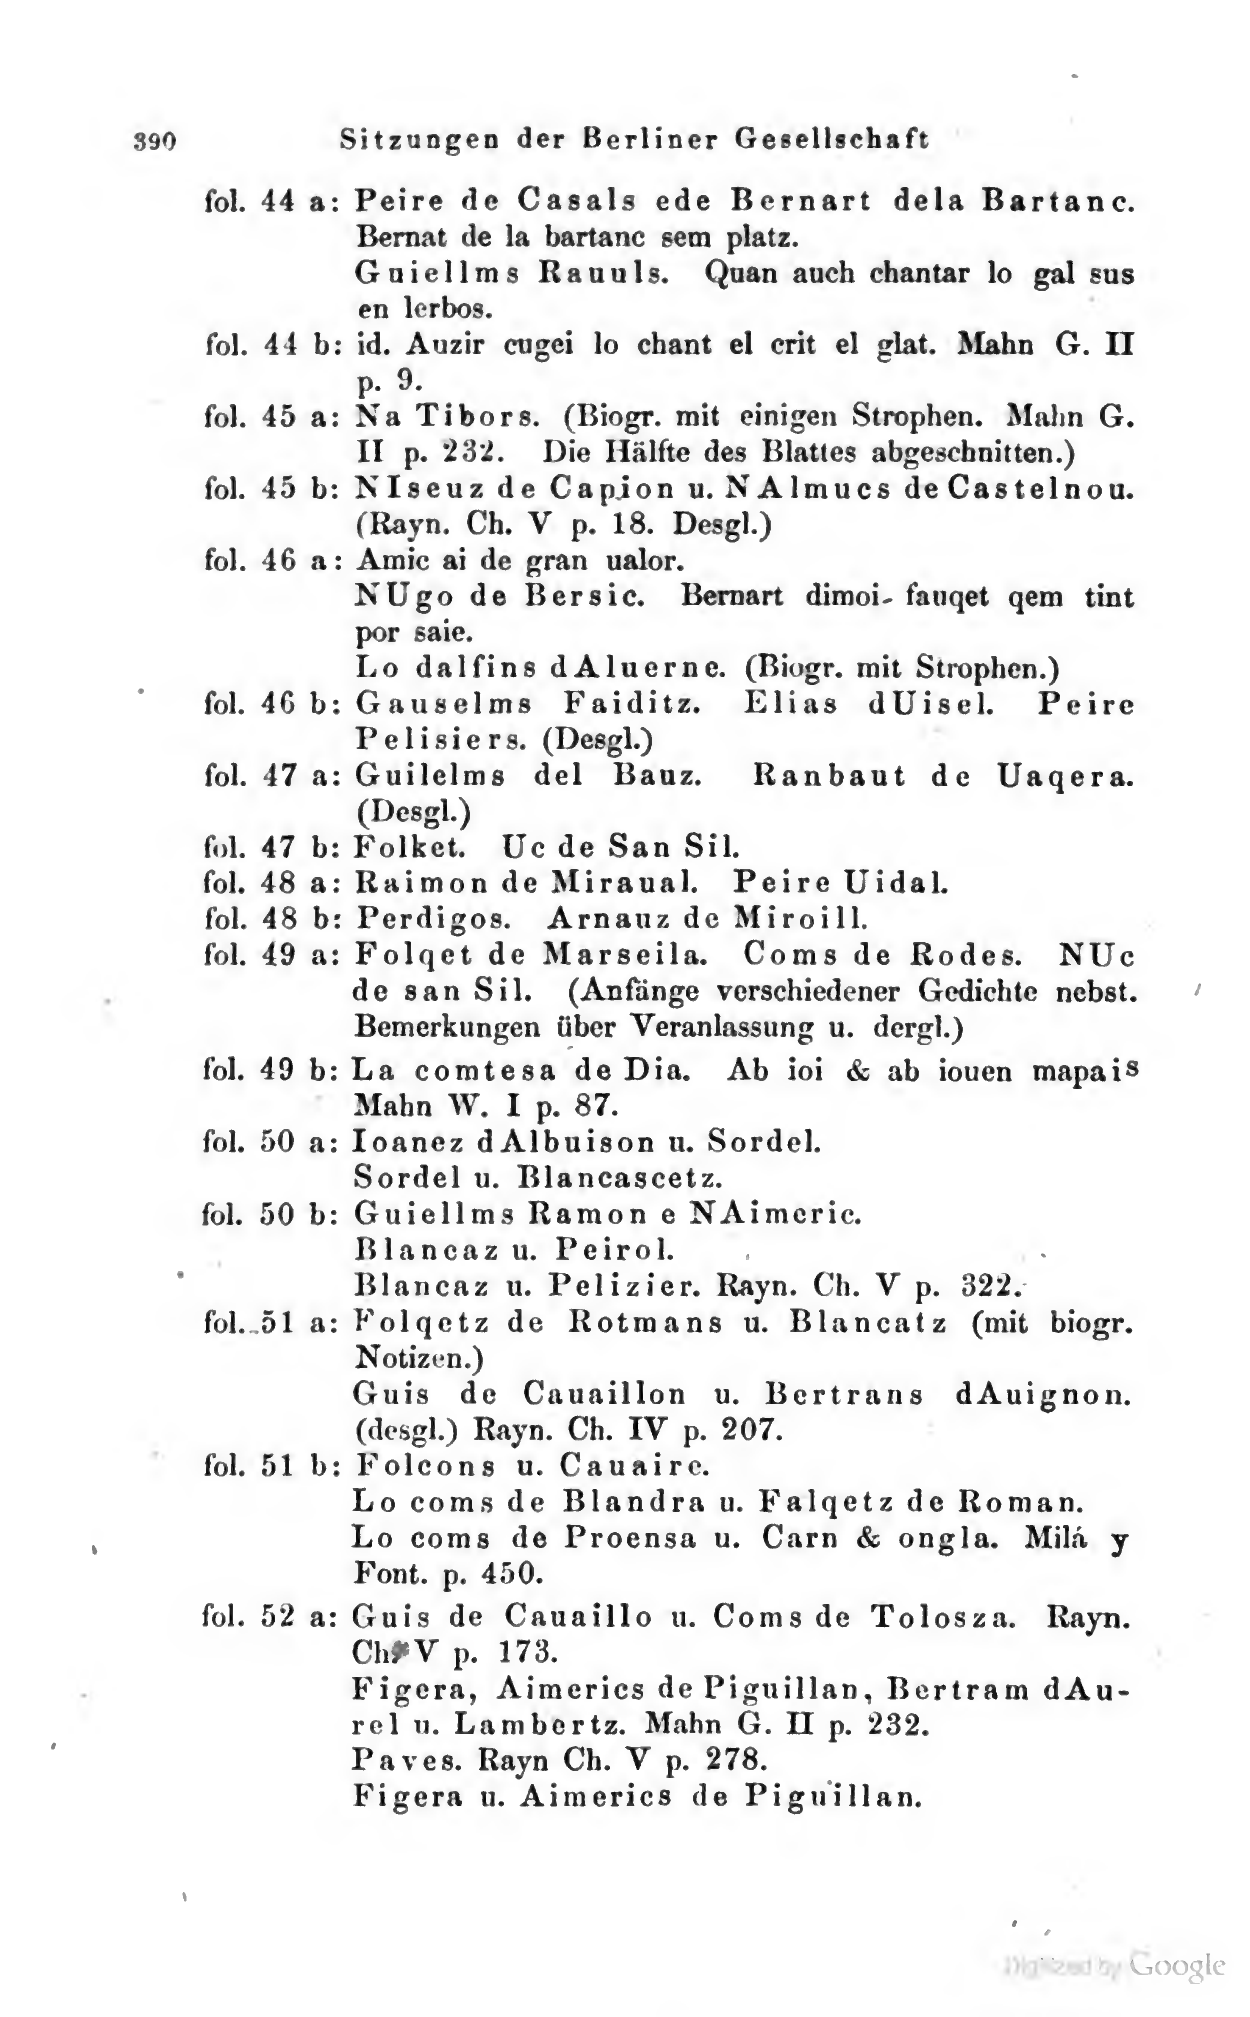 390 Sitzungen der Berliner Gesellschaft
fol. 44 a: Peire de Casals ede Bernart dela Bartanc.
Bernat de la bartanc sem platz.
Guiellms Rauuls. Quan auch chantar lo gal sus
en lerbos.
fol. 44 b: id. Auzir cugei lo chant el crit el glat. Mahn G. II
p. 9.
fol. 45 a: Na Tibors. (Biogr. mit einigen Strophen. Mahn G.
II p. 232. Die Hälfte des Blattes abgeschnitten.)
fol. 45 b: NIseuz de Capion u. NAlmucs de Castelnou.
(Rayn. Ch. V p. 18. Desgl.)
fol. 46 a: Amic ai de gran ualor.
NUgo de Bersic. Bernart dimoi- fauqet qem tint
por saie.
Lo dalfins dAluerne. (Biogr. mit Strophen.)
fol. 46 b: Gauselms Faiditz. Elias dUisel. Peire
Pelisiers. (Desgl.)
fol. 47 a: Guilelms del Bauz. Ranbaut de Uaqera.
(Desgl.)
fol. 47 b: Folket. Uc de San Sil.
fol. 48 a: Raimon de Miraual. Peire Uidal.
fol. 48 b: Perdigos. Arnauz de Miroill.
fol. 49 a: Folqet de Marseila. Coms de Rodes. NUc
de san Sil. (Anfänge verschiedener Gedichte nebst.
Bemerkungen über Veranlassung u. dergl.)
fol. 49 b: La comtesa de Dia. Ab ioi & ab iouen mapais
Mahn W. I p. 87.
fol. 50 a: Ioanez dAlbuison u. Sordel.
Sordel u. Blancascetz.
fol. 50 b: Guiellms Ramon e NAimeric.
Blancaz u. Peirol.
Blancaz u. Pelizier. Rayn. Ch. V p. 322.
fol. 51 a: Folqetz de Rotmans u. Blancatz (mit biogr.
Notizen.)
Guis de Cauaillon u. Bertrans dAuignon.
(desgl.) Rayn. Ch. IV p. 207.
fol. 51 b: Folcons u. Cauaire.
Lo coms de Blandra u. Falqetz de Roman.
Lo coms de Proensa u. Carn & ongla. Milá y
Font. p. 450.
fol. 52 a: Guis de Cauaillo u. Coms de Tolosza. Rayn.
Ch. V p. 173.
Figera, Aimerics de Piguillan, Bertram dAu-
rel u. Lambertz. Mahn G. II p. 232.
Paves. Rayn Ch. V p. 278.
Figera u. Aimerics de Piguillan.
Digitized by Google